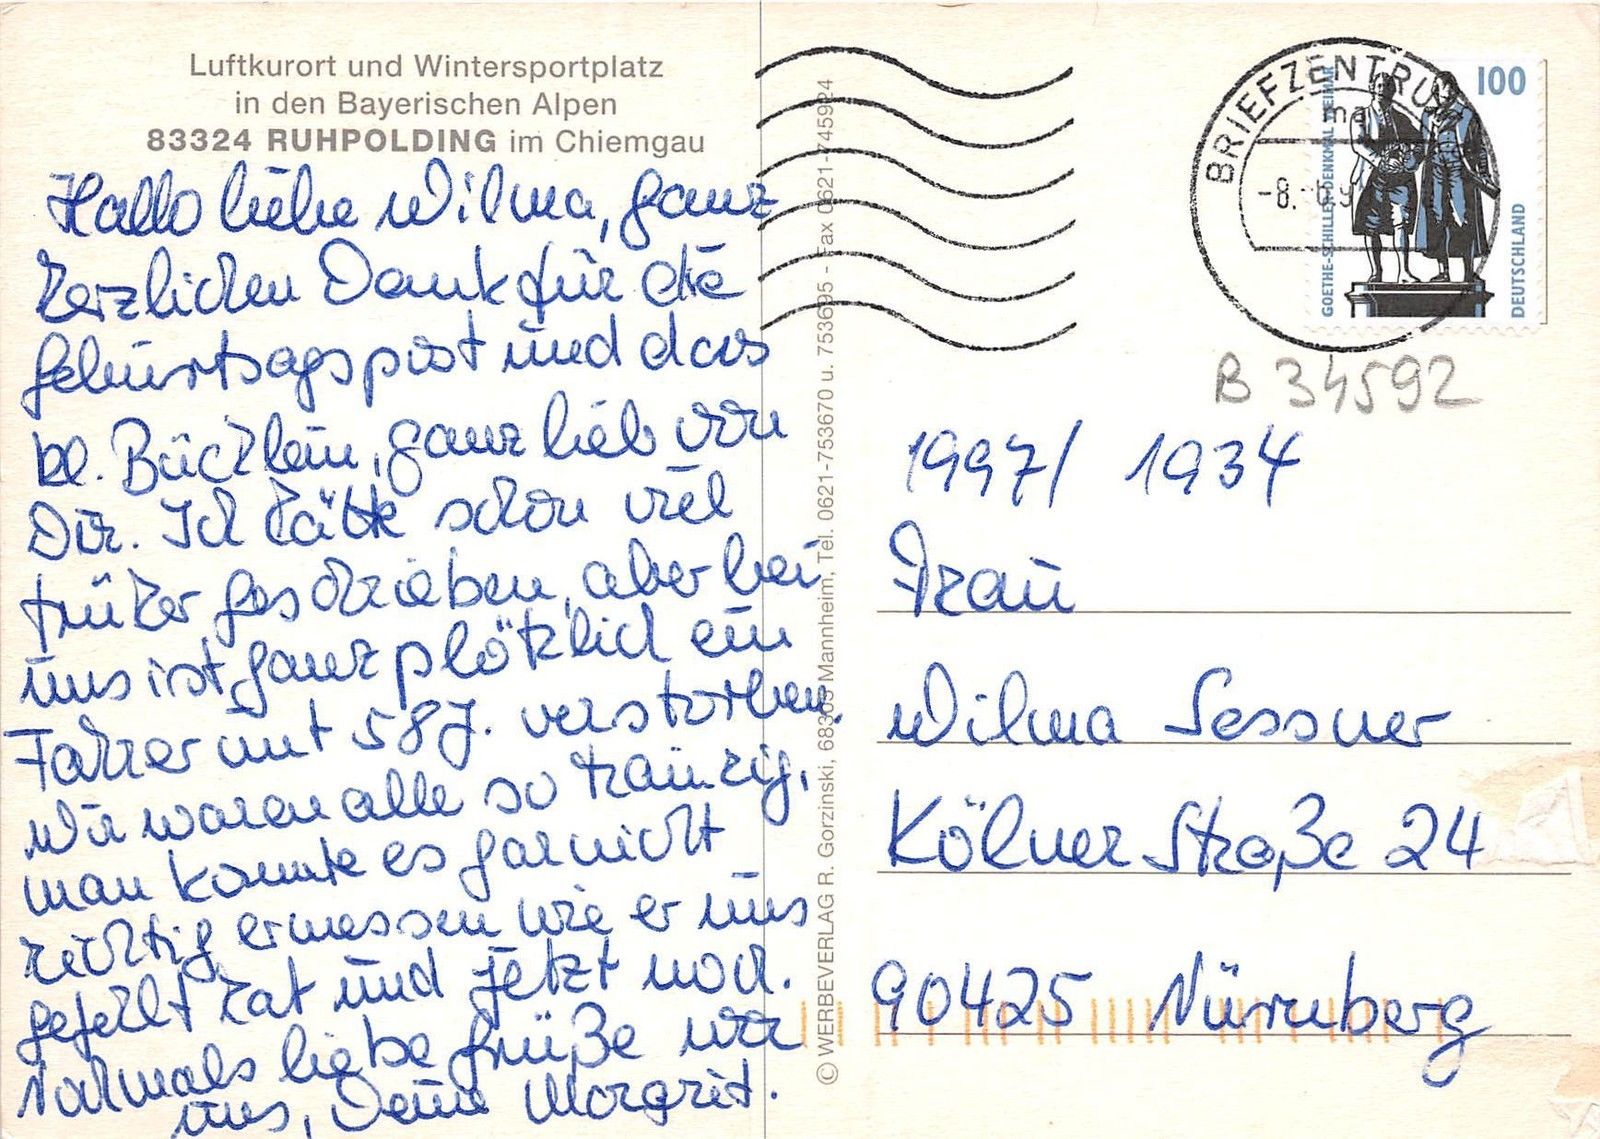 Luftkurort und Wintersportplatz
in den Bayerischen Alpen
83324 RUHPOLDING im Chiemgau
Hallo liebe Wilma, ganz
herzlichen Dank für die
Geburtsagspost und das
kl. Bücklein, ganz lieb von
Dir. Ich hätte schon viel
früher geschrieben, aber bei
uns ist ganz plötzlich ein
Fahrer mit 58 J. verstorben.
Wir waren alle so traurig,
man konnte es gar nicht
richtig ermessen wie er uns
gefehlt hat und jetzt noch.
Nochmals liebe Grüße von
uns, Deine Margrit.
© WERBEVERLAG R. Gorzinski, 68305 Mannheim, Tel. 0621-753670 u. 753695 - Fax 0621-745924
BRIEFZENTRUM
-8.
100
GOETHE-SCHILLER-DENKMAL WEIMAR
DEUTSCHLAND
B 34592
1997/ 1934
Frau
Wilma Sessner
Kölner Straße 24
90425 Nürnberg